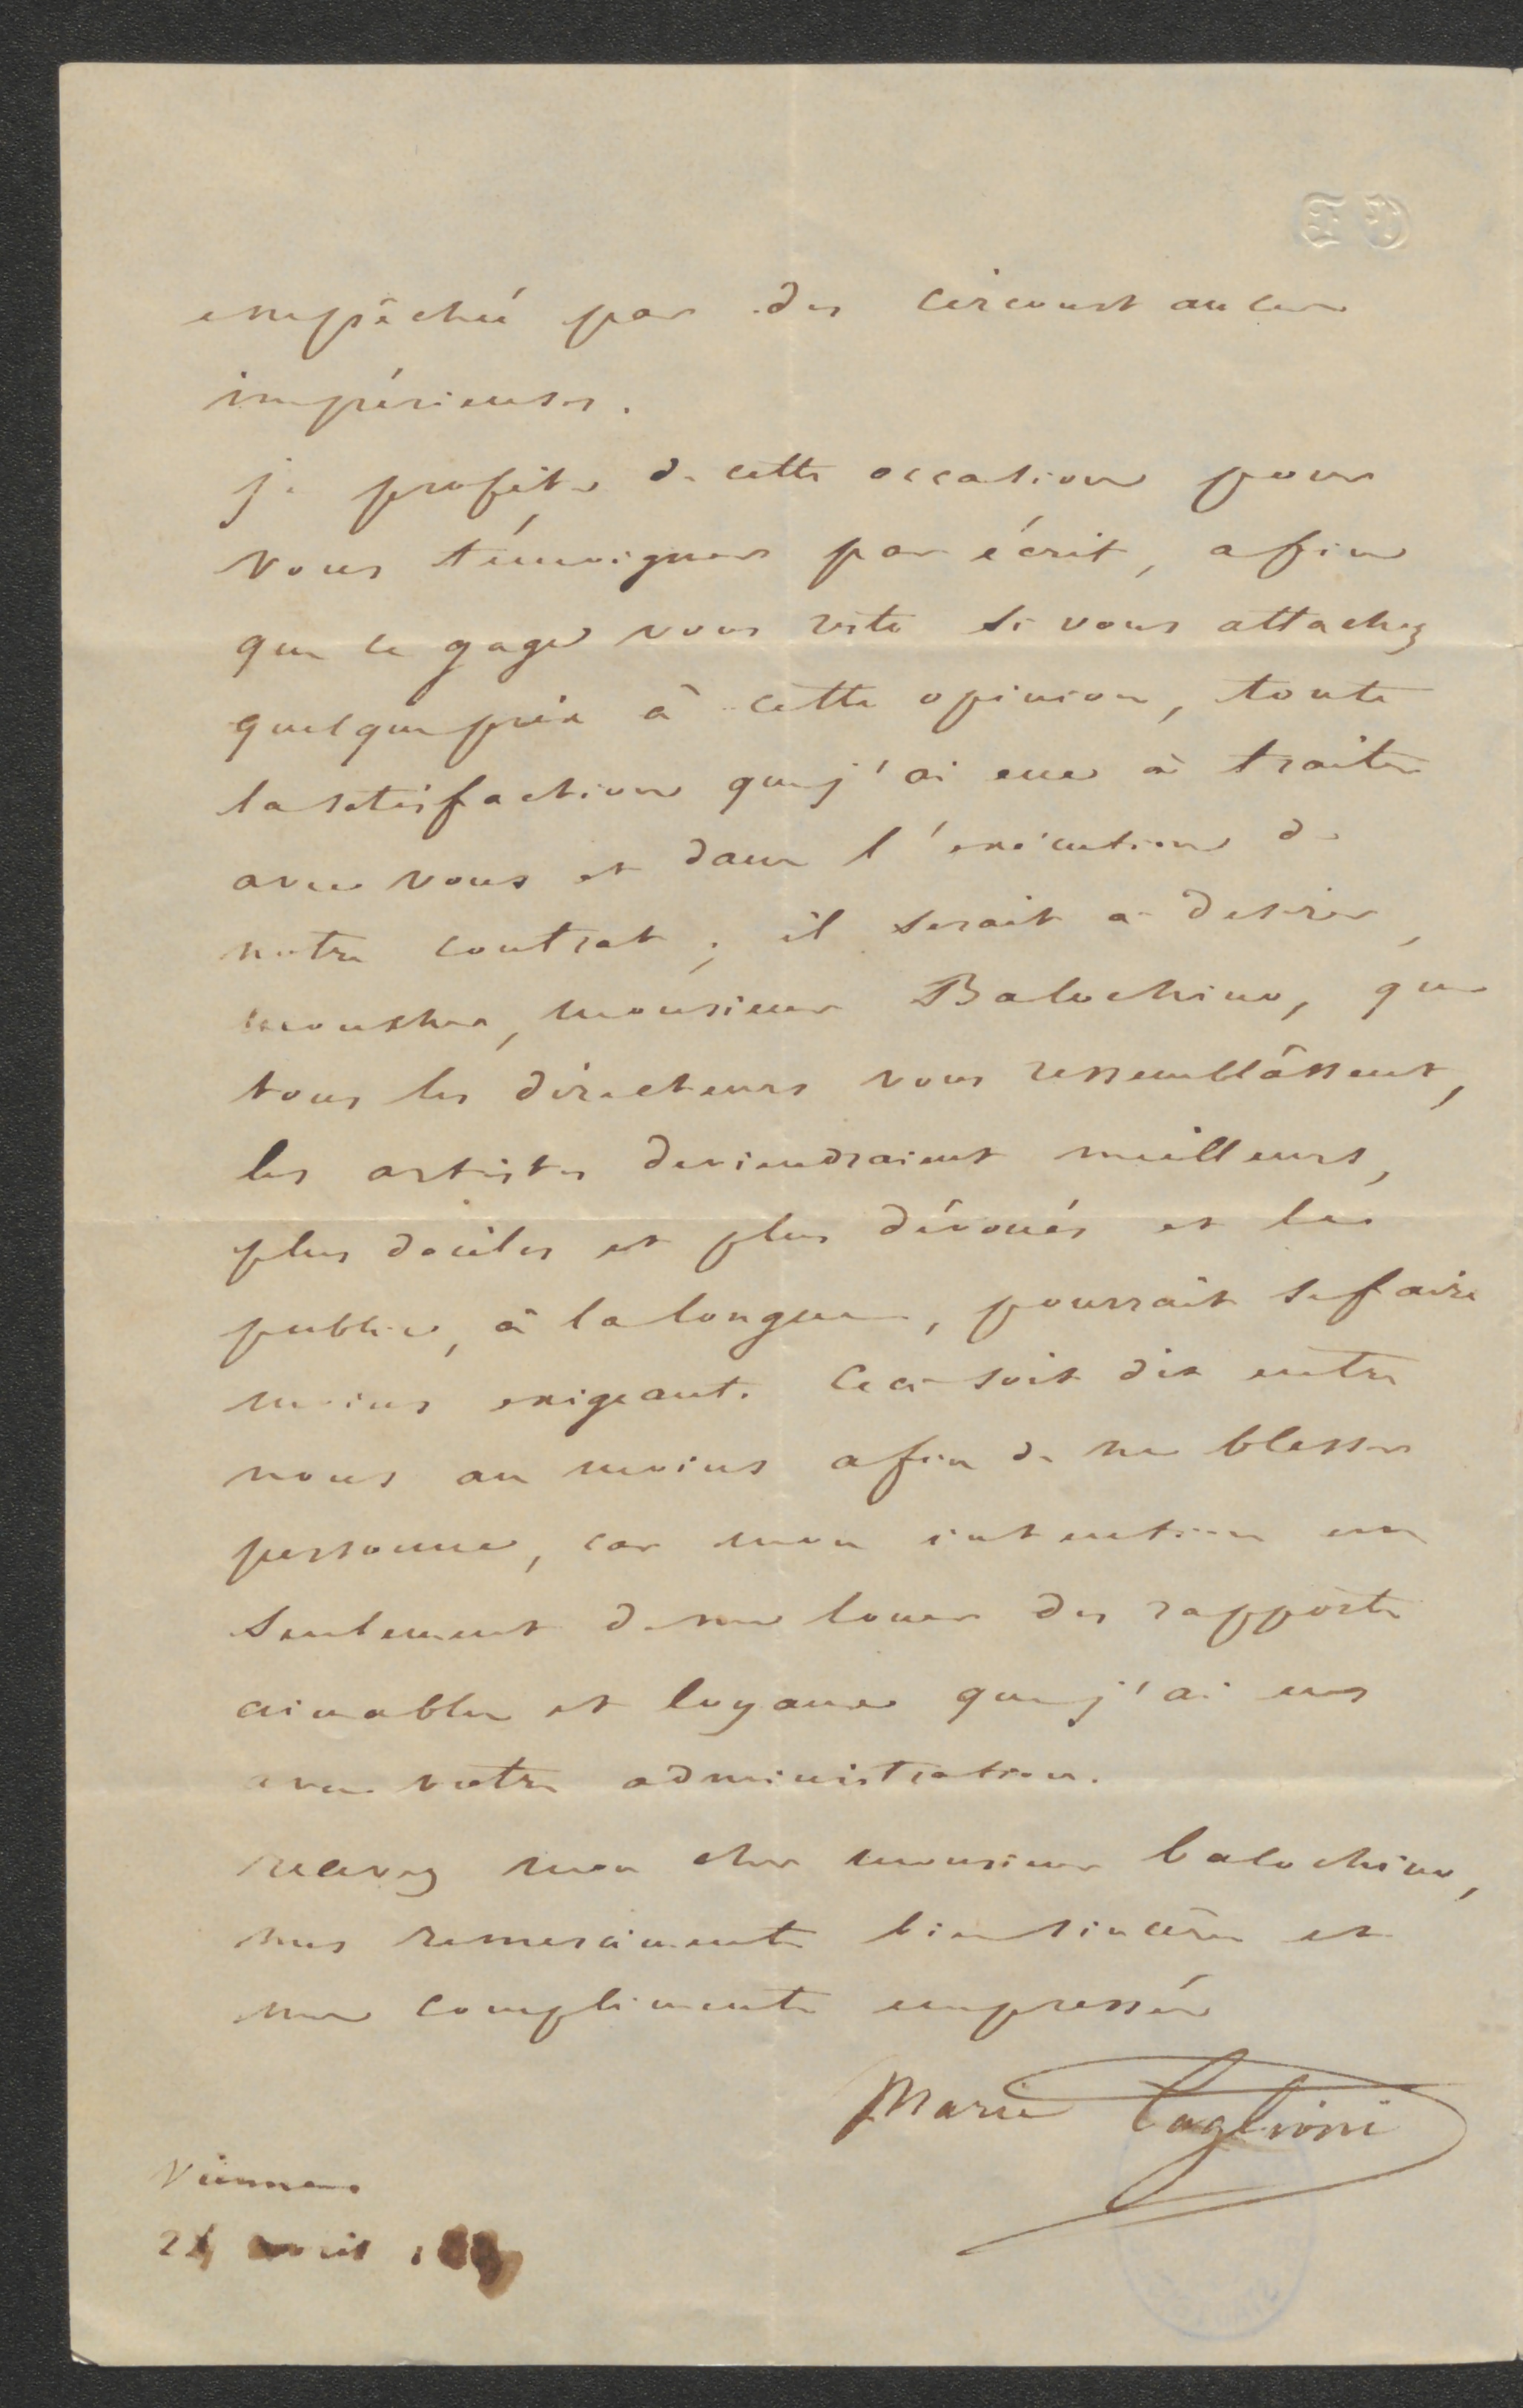 empêchée par des circonstances
impérieuses.
je profite de cette occasion pour
vous témoigner par écrit, afin
que ce gage vous reste si vous attachez
quelque prix à cette opinion, toute
la satisfaction que j'ai eue à traiter
avec vous et dans l'exécution de
notre contrat; il serait à desirer,
monsieur Balochino, que
tous les directeurs vous ressemblâssent,
les artistes deviendraient meilleurs,
plus dociles et plus dévoués et le
public, à la longue, pourrait se faire
moins exigeant. Ceci soit dit entre
nous au moins afin de ne blesser
personne, car mon intention est
seulement de me louer des rapports
aimables et loyaux que j'ai eus
avec votre administration.
recevez mon cher monsieur balochino,
mes remerciments bien sincères et
mes compliments empressés
Marie Taglioni
Vienne
avril